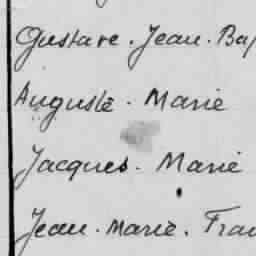 Gustave. Jean. Bap
Auguste. Marie
Jacques. Marie
Jean. Marie. Fran